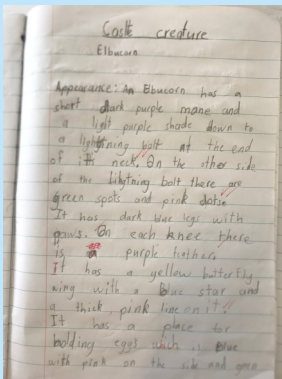 Castle creature
Elbucorn
Appearance: An Elbucorn has a
short dark purple mane and
a light purple shade down to
a lightning bolt at the end
of its neck. On the other side
of the lihgtning bolt there are
green spots and pink dots.
It has dark blue legs with
paws. On each knee there
is purple feathers.
It has a yellow butterfly
wing with a blue star and
a thick, pink line on it.
It has a place for
holding eggs wich is blue
with pink on the side and green